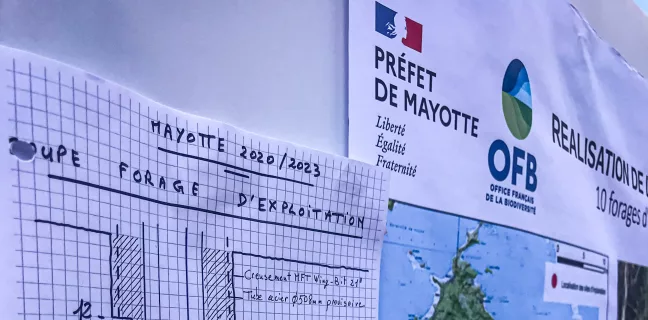 MAYOTTE 2020/2023
COUPE FORAGE D'EXPLOITATION
Creusement MFT Wing-Bit 21"
Tube acier Ø508mm provisoire
12
PRÉFET
DE MAYOTTE
Liberté
Égalité
Fraternité
OFB
OFFICE FRANÇAIS
DE LA BIODIVERSITÉ
REALISATION DE
10 forages d'
Localisation des sites d'exploitation